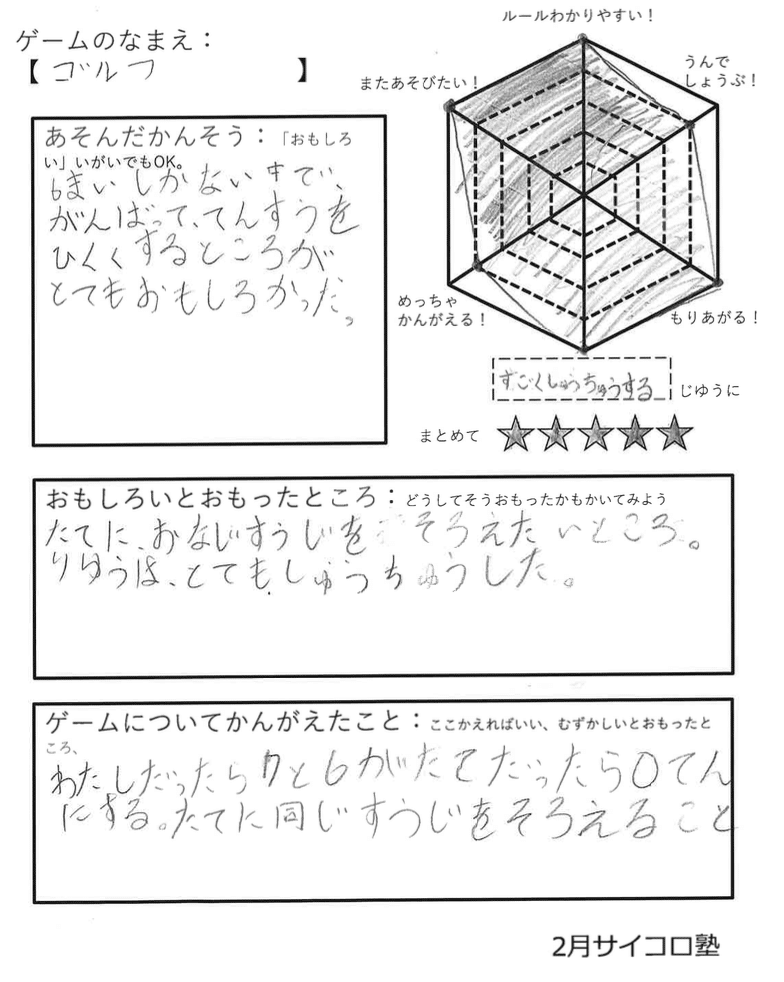 ゲームのなまえ：
【 ゴルフ 】
ルールわかりやすい！
うんで
しょうぶ！
またあそびたい！
めっちゃ
かんがえる！
もりあがる！
すごくしゅうちゅうする
じゆうに
まとめて
あそんだかんそう：「おもしろ
い」いがいでもOK。
6まいしかない中で、
がんばって、てんすうを
ひくくするところが
とてもおもしろかった。
おもしろいとおもったところ：どうしてそうおもったかもかいてみよう
たてに、おなじすうじをそろえたいところ。
りゆうは、とてもしゅうちゅうした。
ゲームについてかんがえたこと：ここかえればいい、むずかしいとおもったと
ころ、
わたしだったら7と6がたてだったら0てん
にする。たてに同じすうじをそろえること
2月サイコロ塾